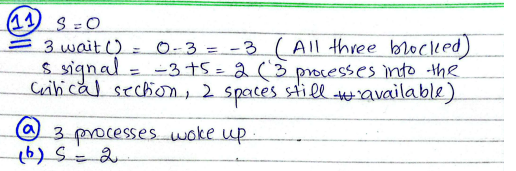 11 S=0
3 wait() = 0-3 = -3 (All three blocked)
5 signal = -3+5 = 2 (3 processes into the
critical section, 2 spaces still available)
(a) 3 processes woke up.
(b) S = 2